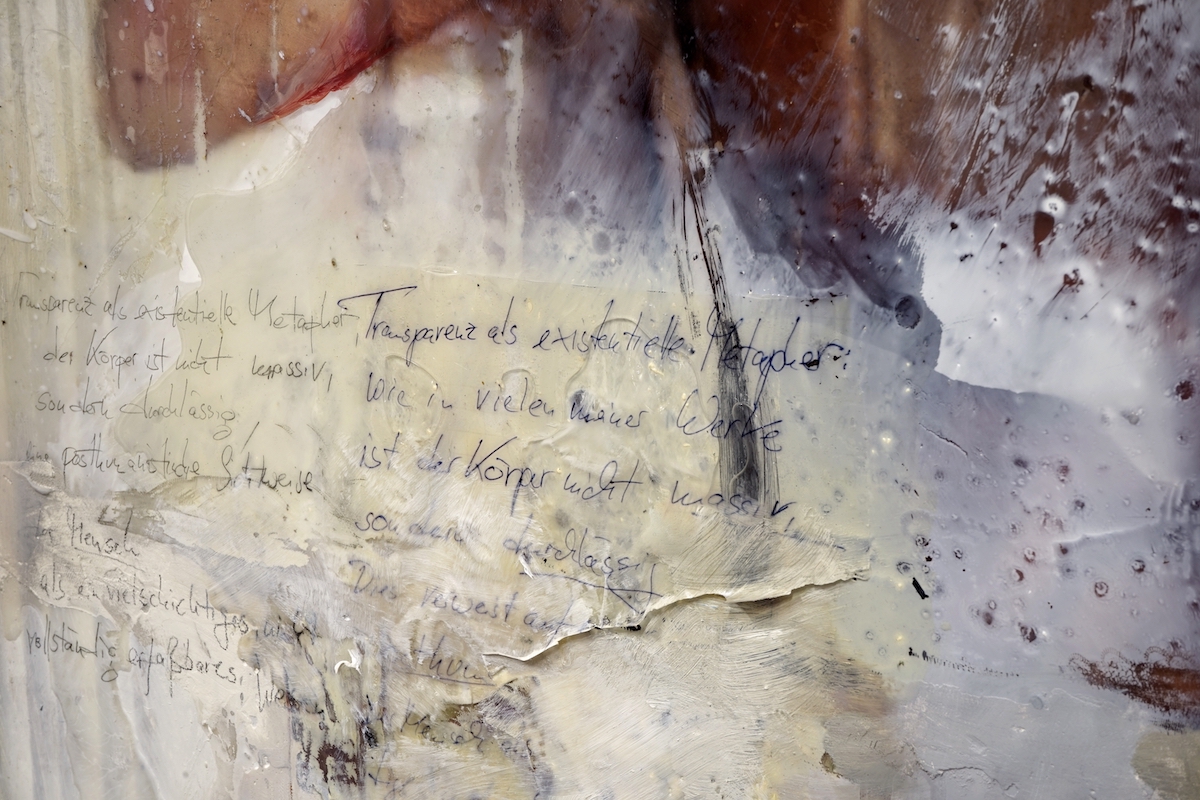 Transparenz als existentielle Metapher,
der Körper ist nicht massiv,
sondern durchlässig,
posthumanistische Sichtweise
Mensch
als ein vielschichtiges, nicht
vollständig erfaßbares,
Transparenz als existentielle Metapher:
Wie in vielen meiner Werke
ist der Körper nicht massiv,
sondern durchlässig
Dies verweist auf